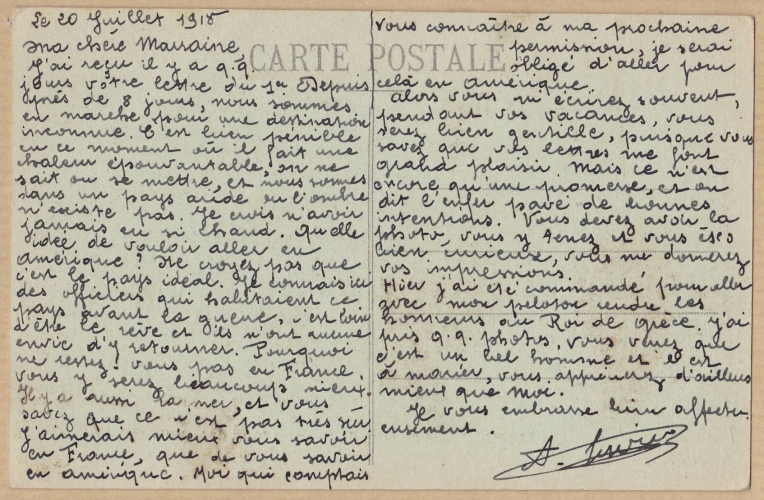 Le 20 Juillet 1918
Ma chère Marraine,
CARTE POSTALE
J'ai reçu il y a q.q.
jours votre lettre du 1er Depuis
près de 8 jours, nous sommes
en marche pour une destination
inconnue. C'est bien pénible
en ce moment où il fait une
chaleur épouvantable, on ne
sait où se mettre, et nous sommes
dans un pays aride où l'ombre
n'existe pas. Je crois n'avoir
jamais eu si chaud. Quelle
idée de vouloir aller en
amérique? Ne croyez pas que
c'est le pays idéal. Je connais ici
des officiers qui habitaient ce
pays avant la guerre, c'est loin
d'être le rêve et ils n'ont aucune
envie d'y retourner. Pourquoi
ne restez-vous pas en France,
vous y serez beaucoups mieux.
Il y a aussi la mer, et vous
savez que ce n'est pas très sûr
J'aimerais mieux vous savoir
en France, que de vous savoir
en amérique. Moi qui comptais
vous connaître à ma prochaine
permission, je serai
obligé d'aller pour
celà en amérique.
Alors vous m'écrirez souvent,
pendant vos vacances, vous
serez bien gentille, puisque vous
savez que vos lettres me font
grand plaisir. Mais ce n'est
encore qu'une promesse, et on
dit l'enfer pavé de bonnes
intentions. Vous devez avoir la
photo, vous y tenez et vous êtes
bien curieuse, vous me donnerez
vos impressions.
Hier j'ai été commandé pour aller
avec mon peloton rendre les
honneurs au Roi de grèce. j'ai
pris q.q. photos, vous verrez que
c'est un bel homme et il est
à marier, vous apprécierez d'ailleurs
mieux que moi.
Je vous embrasse bien affectu
eusement.
A.